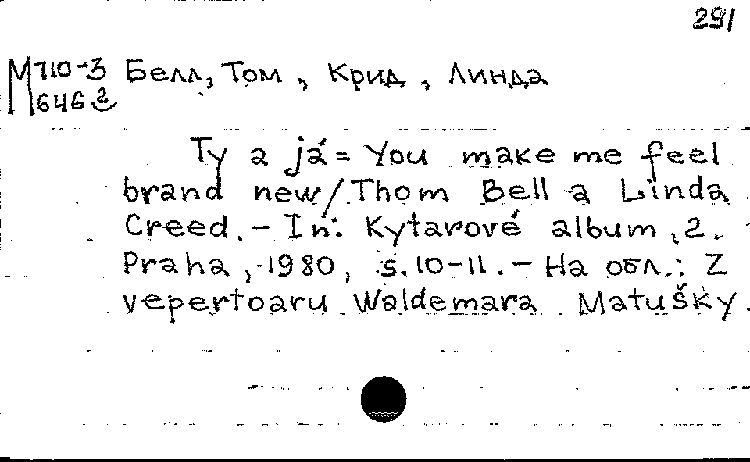 291
М710-3 Белл, Том, Крид, Линда
646
Ty a já = You make me feel
brand new / Thom Bell a Linda
Creed. - In: Kytarové album, 2.
Praha, 1980, s. 10-11. - На обл.: Z
repertoaru Waldemara Matušky.